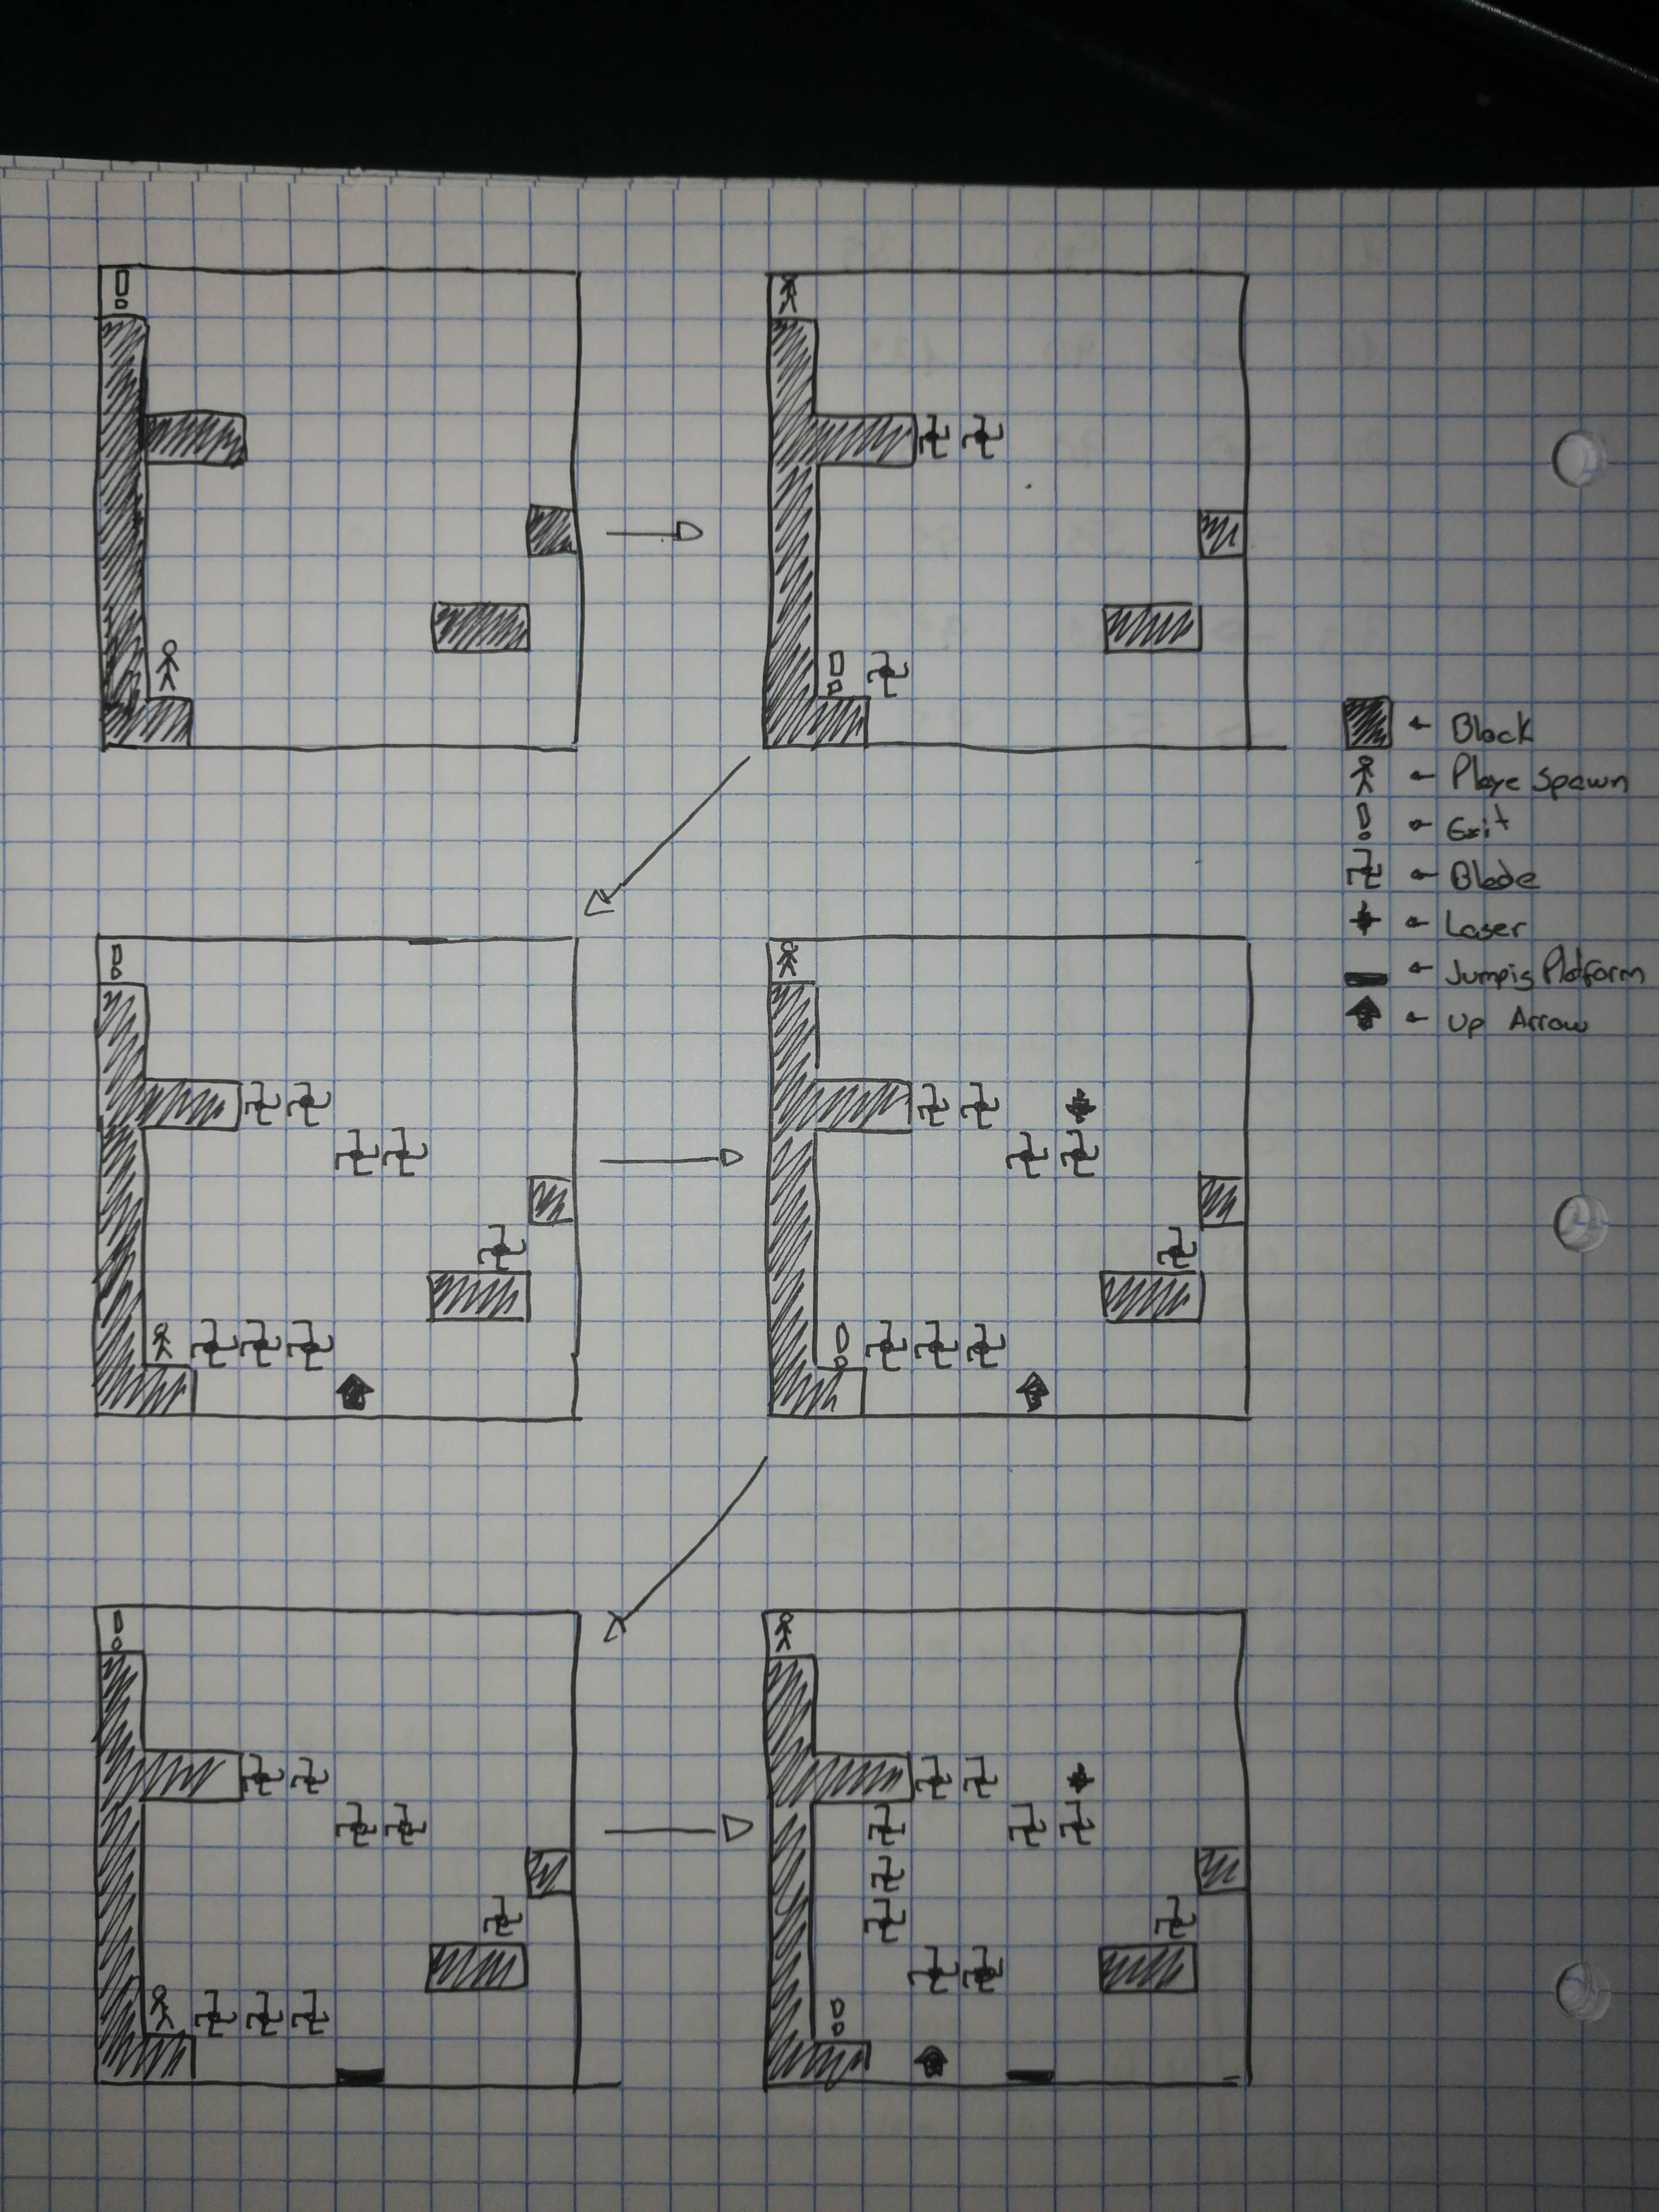 ← Block
← Playe Spawn
← Exit
← Blade
← Laser
← Jumpig Platform
← Up Arrow